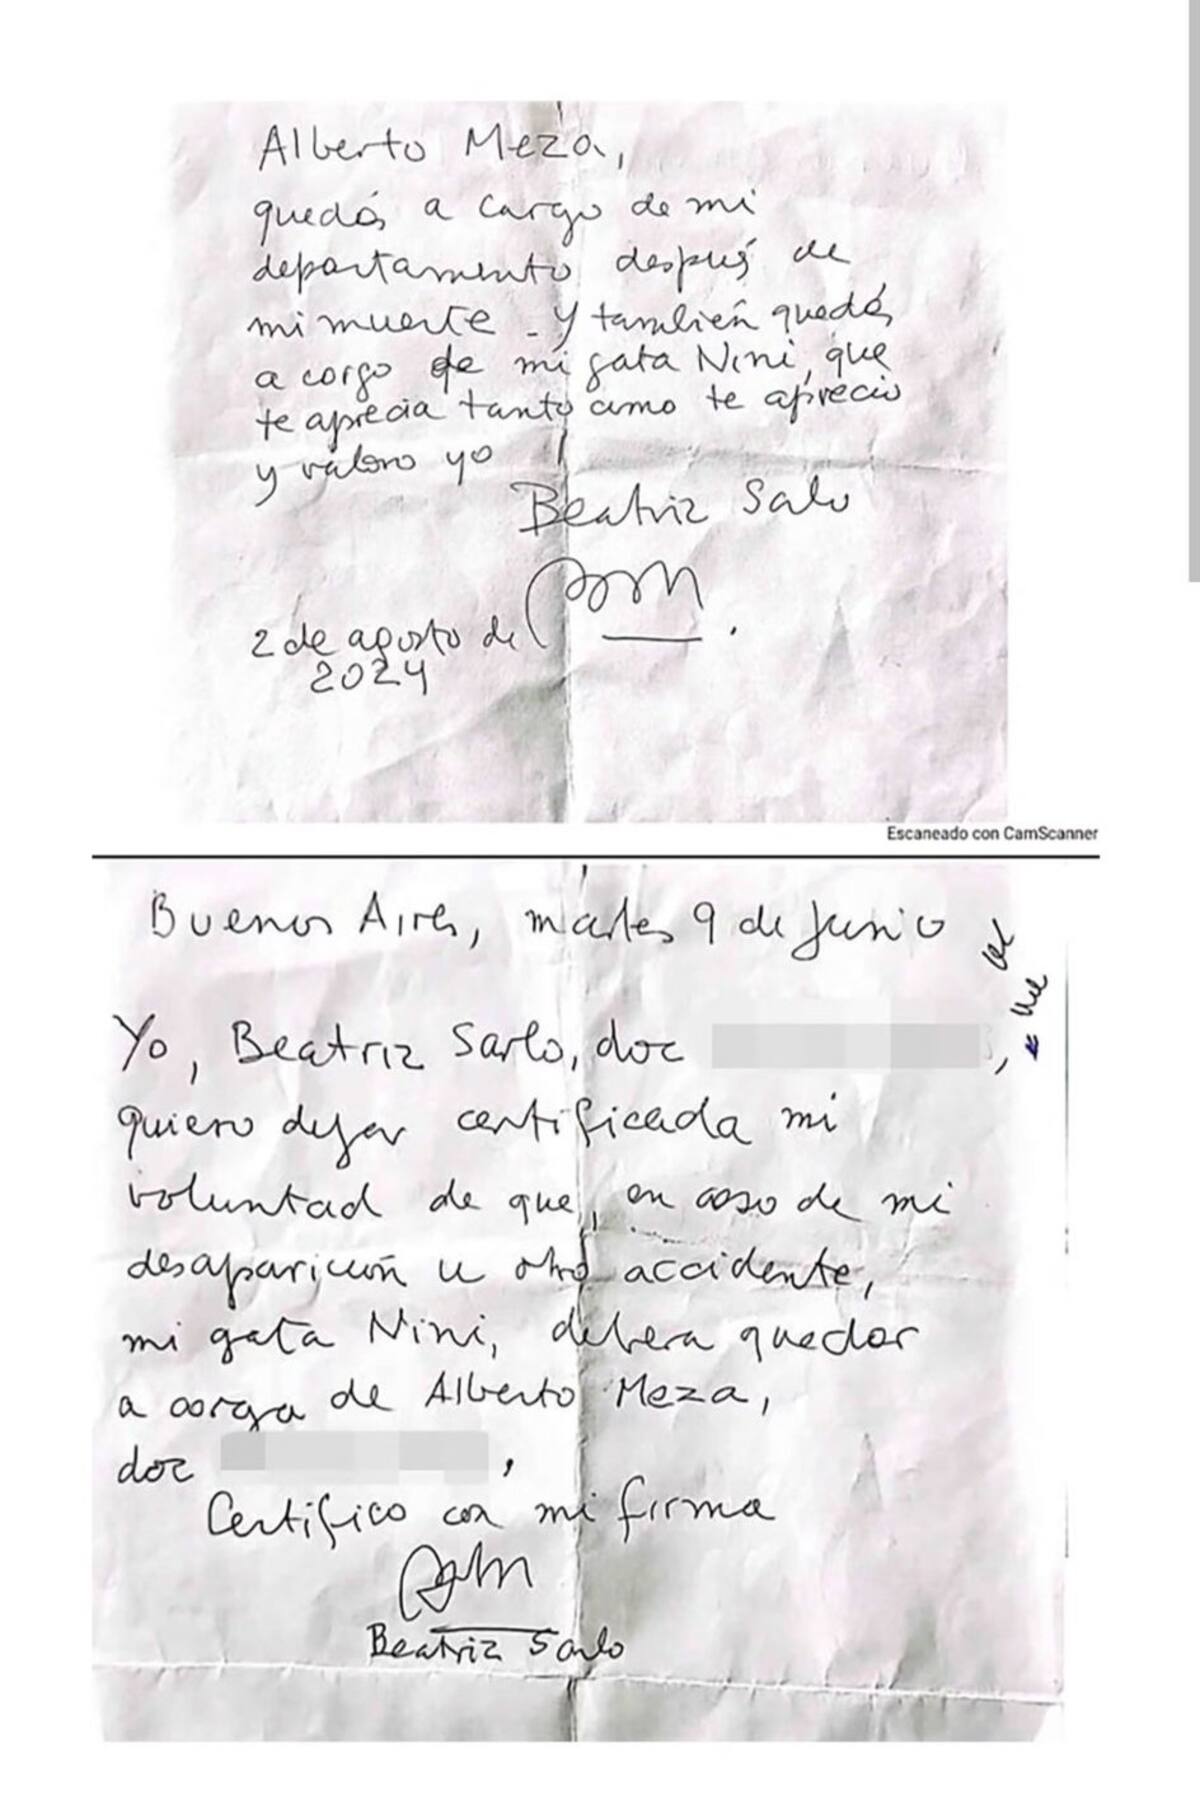 Alberto Meza,
quedás a cargo de mi
departamento despúes de
mi muerte - Y también quedás
a cargo de mi gata Nini, que
te aprecia tanto como te aprecio
y valoro yo
Beatriz Sarlo
2 de agosto de
2024
Escaneado con CamScanner
Buenos Aires, martes 9 de junio
Yo, Beatriz Sarlo, doc
quiero dejar certificada mi
voluntad de que, en caso de mi
desaparición u otro accidente,
mi gata Nini, debera quedar
a cargo de Alberto Meza,
doc ,
Certifico con mi firma
Beatriz Sarlo